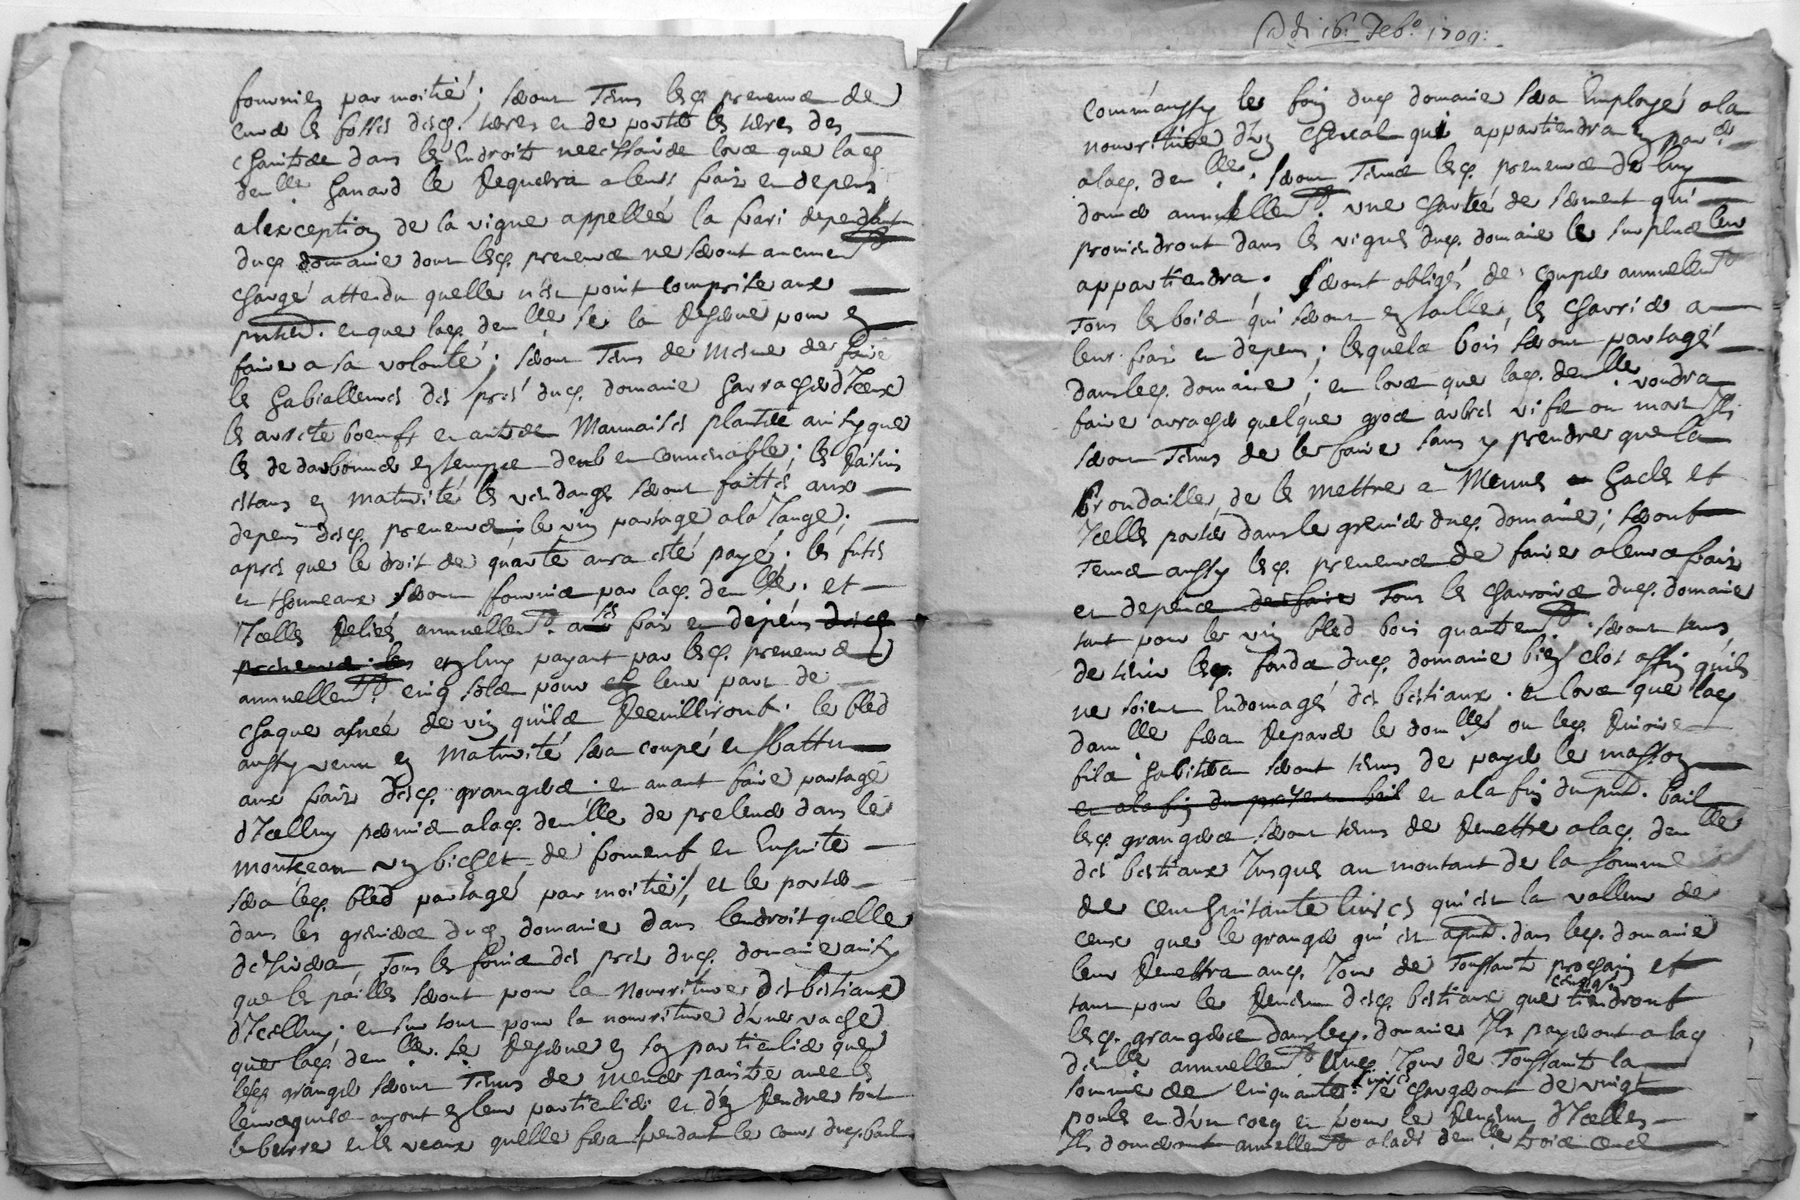 fournies par moitié; seront Tenus lesd. preneurs de
curer les fossés desd. terres et de porter les terres des
chaintres dans les Endroits necessaires lors que lad.
demlle Ganard le Requerra a leurs frais et depens
alexception de la vigne appelleé la frari dependant
dud. domaine dont lesd. preneurs ne seront aucunemt
chargé attendu quelle n'est point comprise aux
pntes. et que lad. demlle se la Reserve pour en
faire a sa volonté; seront Tenus de mesme de faire
les des prés dud. domaine harracher d'Iceux
les arreste boeufs et autres Mauvaises plantes ainsy que
les dedarbonner en temps deub et convenable; les Raisins
estans en maturité les vendanges seront faittes aux
depens desd. preneurs; le vin partagé a la
apres que le droit de quarte aura esté payé. les futes
et thonneaux seront fournies par lad. demlle. et
Icelles Reliés annuellemt. a ses frais et depens desd.
preneurs. les et luy payant par lesd. preneurs
annuellemt. cinq sols pour leur part de
chaque asneé de vin quils Receuilliront. le bled
aussy venu en maturité sera coupé et battu
aux frais desd. grangers. et avant faire partage
d'Icelluy permis a lad. demlle de prelever dans le
monceau un bichet de froment et Ensuite
sera led. bled partagé par moitié, et le porter
dans les greniers dud. domaine dans lendroit quelle
desirera, Tous les foins des prés dud. domaine ainsy
que les pailles seront pour la Nourriture des bestiaux
d'Icelluy; et sur tout pour la nourriture d'une vache
que lad. demlle. se Reserve en son particulier que
lesd. grangers seront Tenus de mener paitre avec les
leurs quils auront en leur particulier et d'en Rendre tout
le beurre et les veaux quelle fera pendant le cours dud. bail
Adi 16. Feb.o 1709:
Comm'aussy les foin dud. domaine sera Employé a la
nourriture d'un Cheval qui appartiendra en par er
a lad. demlle. seront Tenus lesd. preneurs de luy
donner annuellemt. une charteé de serment qui
proviendront dans les vignes dud. domaine le surplus leur
appartiendra. Seront obligés de couper annuellemt
Tous les bois qui seront en taille, les charrier a
leur frais et depens; lesquels bois seront partagés
dans led. domaine; et lors que lad. demlle. voudra
faire arracher quelque gros arbres vifs ou morts Ils
seront Tenus de le faire sans y prendre que la
Brondaille, de le mettre a Menues et
Icelles porter dans le grenier dud. domaine; seront
Tenus aussy lesd. preneurs de faire a leurs frais
et depence de faire Tous les charrois dud. domaine
tant pour le vin bled bois qu'autremt. seront tenus
de tenir les fonds dud. domaine bien clos affin quils
ne soient Endomagés des bestiaux. et lors que lad.
damlle fera Reparer le ou led.
fils habitera seront tenus de payer le masson
et a la fin du present bail et a la fin du pnt. bail
lesd. grangers seront tenus de Remettre a lad. demlle
des bestiaux Jusques au montant de la somme
de cent huitante livres qui est la valleur de
ceux que le granger qui est apnt. dans led. domaine
leur Remettra aud. Jour de Toussaints prochain et
tant pour le Revenu desd. bestiaux que tiendront
lesd. grangers dans led. domaine Ils payeront a lad.
demlle annuellemt aud. Jour de Toussaints la
somme de cinquante livres se chargeront de vingt
poules et d'un cocq et pour le Revenu d'Icelles
Ils donneront annuellemt a lade. demlle. trois cens